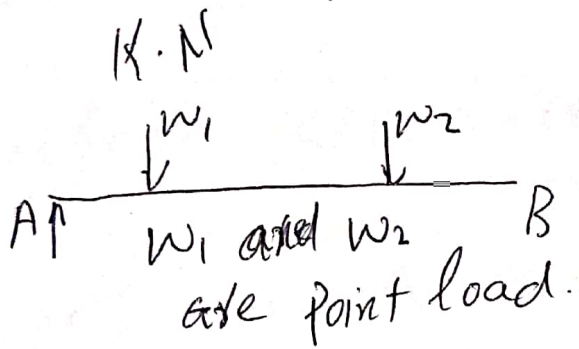 K.N
W1 W2
A B
W1 and W2
are point load.